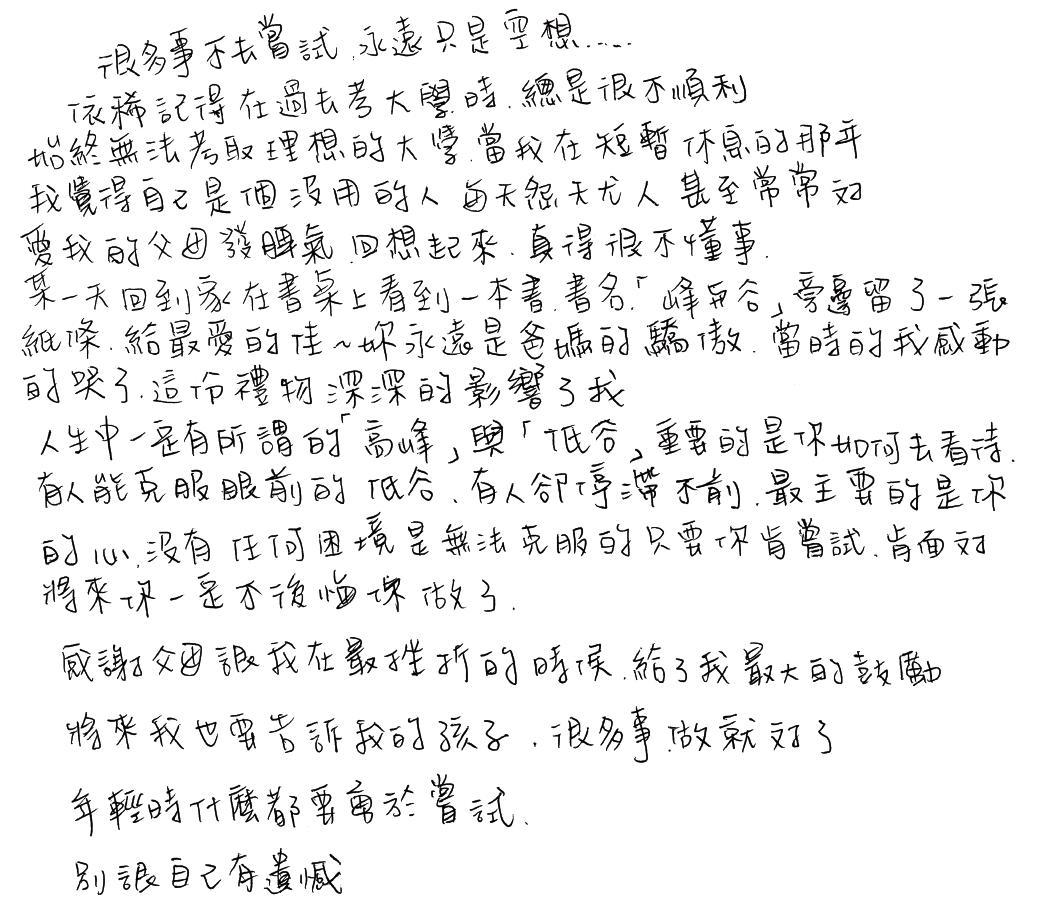 很多事不去嘗試,永遠只是空想.....
依稀記得在過去考大學時.總是很不順利
始終無法考取理想的大學.當我在短暫休息的那年
我覺得自己是個沒用的人 每天怨天尤人 甚至常常對
愛我的父母發脾氣.回想起來.真得很不懂事.
某一天回到家在書桌上看到一本書.書名.「峰與谷」旁邊留了一張
紙條.給最愛的佳~妳永遠是爸媽的驕傲.當時的我感動
的哭了.這份禮物深深的影響了我
人生中一定有所謂的「高峰」與「低谷」重要的是你如何去看待.
有人能克服眼前的低谷、有人卻停滯不前.最主要的是你
的心.沒有任何困境是無法克服的只要你肯嘗試.肯面對
將來你一定不後悔你做了.
感謝父母讓我在最挫折的時候.給了我最大的鼓勵
將來我也要告訴我的孩子.很多事.做就對了
年輕時什麼都要勇於嘗試.
別讓自己有遺憾